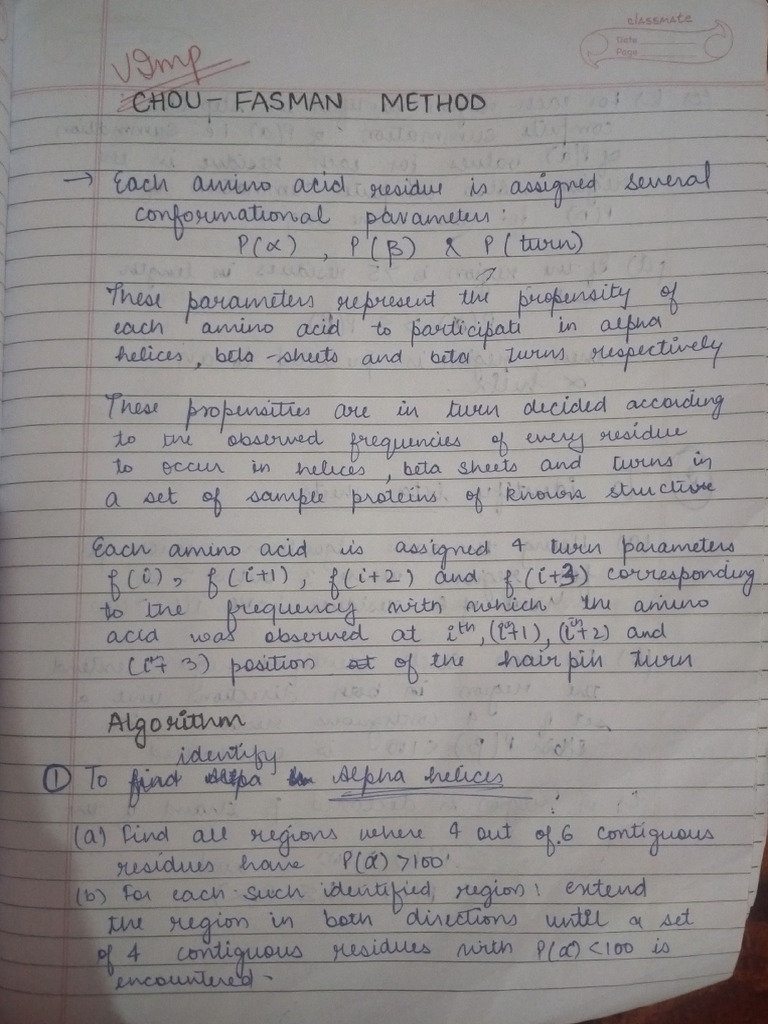 classmate
Date
Page
V Imp
CHOU - FASMAN METHOD
→ Each amino acid residue is assigned several
conformational parameters:
P(α), P(β) & P(turn)
These parameters represent the propensity of
each amino acid to participate in alpha
helices, beta-sheets and beta turns respectively
These propensities are in turn decided according
to the observed frequencies of every residue
to occur in helices, beta sheets and turns in
a set of sample proteins of known structure
Each amino acid is assigned 4 turn parameters
f(i), f(i+1), f(i+2) and f(i+3) corresponding
to the frequency with which the amino
acid was observed at ith, (i+1), (i+2) and
(i+3) position of the hairpin turn
Algorithm
identify
① To find Alpha helices
(a) Find all regions where 4 out of 6 contiguous
residues have P(α) >100
(b) For each such identified region: extend
the region in both directions until a set
of 4 contiguous residues with P(α) <100 is
encountered -